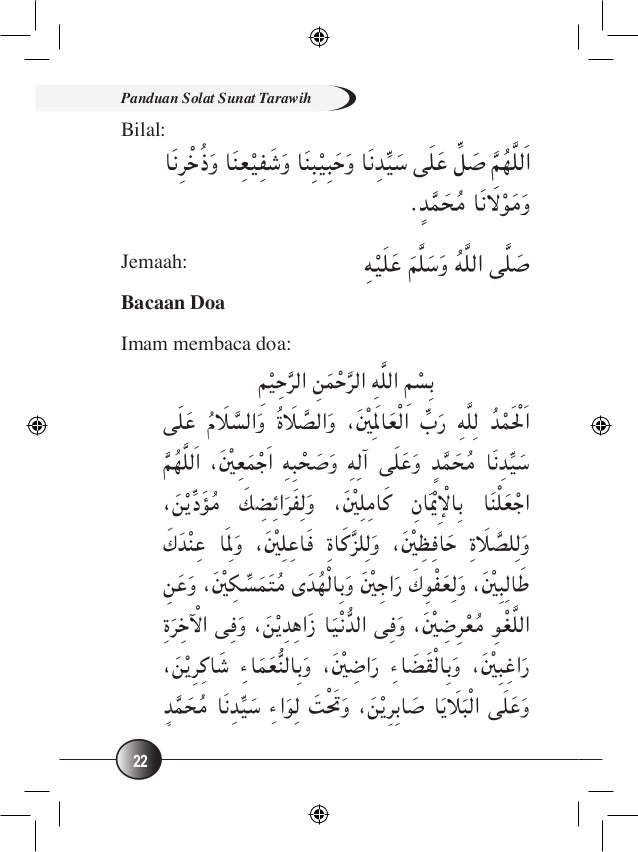 Panduan Solat Sunat Tarawih
Bilal:
اَللَّهُمَّ صَلِّ عَلَى سَيِّدِنَا وَحَبِيْبِنَا وَشَفِيْعِنَا وَذُخْرِنَا
وَمَوْلَانَا مُحَمَّدٍ.
Jemaah:
صَلَّى اللَّهُ وَسَلَّمَ عَلَيْهِ
Bacaan Doa
Imam membaca doa:
بِسْمِ اللَّهِ الرَّحْمَنِ الرَّحِيْمِ
اَلْحَمْدُ لِلَّهِ رَبِّ اَلْعَالَمِيْنَ، وَالصَّلَاةُ وَالسَّلَامُ عَلَى
سَيِّدِنَا مُحَمَّدٍ وَعَلَى آلِهِ وَصَحْبِهِ اَجْمَعِيْنَ، اَللَّهُمَّ
اجْعَلْنَا بِالْإِيْمَانِ كَامِلِيْنَ، وَلِفَرَائِضِكَ مُؤَدِّيْنَ،
وَلِلصَّلَاةِ حَافِظِيْنَ، وَلِلزَّكَاةِ فَاعِلِيْنَ، وَلِمَا عِنْدَكَ
طَالِبِيْنَ، وَلِعَفْوِكَ رَاجِيْنَ وَبِالْهُدَى مُتَمَسِّكِيْنَ، وَعَنِ
اللَّغْوِ مُعْرِضِيْنَ، وَفِى الدُّنْيَا زَاهِدِيْنَ، وَفِى الْآخِرَةِ
رَاغِبِيْنَ، وَبِالْقَضَاءِ رَاضِيْنَ، وَبِالنُّعَمَاءِ شَاكِرِيْنَ،
وَعَلَى الْبَلَايَا صَابِرِيْنَ، وَتَحْتَ لِوَاءِ سَيِّدِنَا مُحَمَّدٍ
22